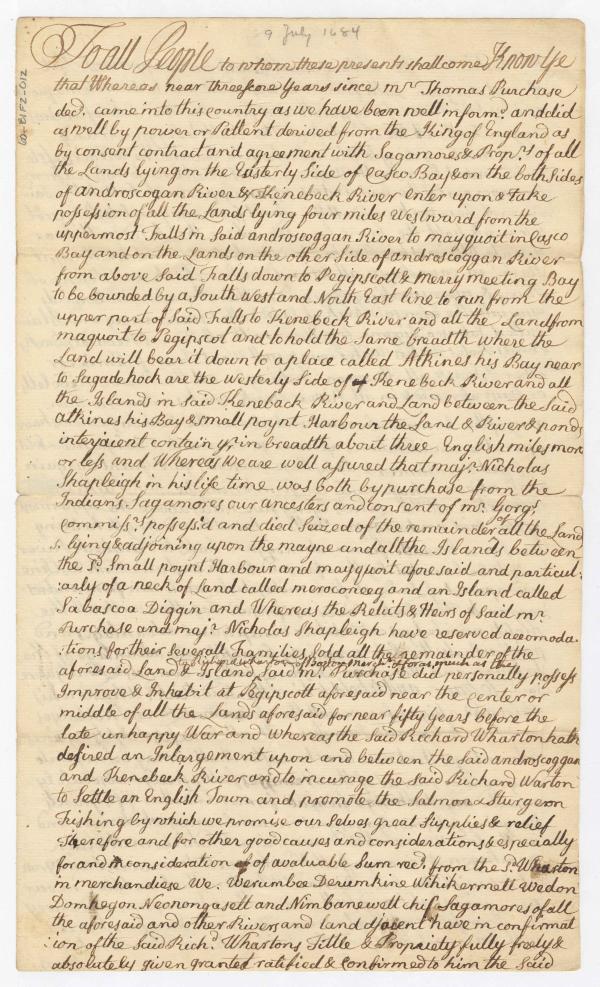 9 July 1684
60-B1F2-012
To all People to whom these presents shall come Know Ye
that Whereas near threescore Years since mr Thomas Purchase
decd. came into this country as we have been well informd. and did
as well by power or Pattent derived from the King of England as
by consent contract and agreement with Sagamores & Propr.s of all
the Lands lying on the Easterly Side of Casco Bay & on the both Sides
of androscogan River & Kenebeck River enter upon & take
possession of all the Lands lying four miles Westward from the
uppermost Falls in Said androscoggan River to mayquoit in Casco
Bay and on the Lands on the other Side of androscoggan River
from above Said Falls down to Pegipscott & merry meeting Bay
to be bounded by a South West and North East line to run from the
upper part of Said Falls to Kenebeck River and all the Land from
maquoit to Pegipscot and to hold the Same breadth where the
Land will bear it down to a place called Atkines his Bay near
to Sagadehock are the Westerly Side of Kenebeck River and all
the Islands in said Keneback River and Land between the Said
atkines his Bay & small poynt Harbour the Land & River & ponds
interjacent contain yr. in breadth about three English miles more
or less and Whereas We are well assured that majr. Nicholas
Shapleigh in his life time was both by purchase from the
Indians Sagamores our ancesters and consent of mr. Gorgs.
Commissrs. possess'd and died Seized of the remainder of all the Land
s. lying & adjoining upon the mayne and all the Islands between
the sd. Small poynt Harbour and mayquoit afore said and particul:
:arly of a neck of Land called meroconeeg and an Island called
Sabascoa Diggin and Whereas the Relicts & Heirs of Said mr.
Purchase and majr. Nicholas Shapleigh have reserved accomoda:
:tions for their Severall Families Sold all the remainder of the
to Richard Wharton of Boston mercht. & foras much as the
aforesaid Land & Island Said mr. Purchase did personally possess
Improve & Inhabit at Pegipscott aforesaid near the center or
middle of all the Lands aforesaid for near fifty Years before the
late unhappy War and whereas the Said Richard Wharton hath
desired an Inlargement upon and between the Said androscoggan
and Kenebeck River and to incurage the Said Richard Warton
to Settle an English Town and promote the Salmon & Sturgeon
Fishing by which we promise our Selves great Supplies & relief
Therefore and for other good causes and considerations & especially
for and in consideration of of a valuable Sum recd. from the Sd. Wharton
in merchandiese We. Werumbee Derumkine Wihikermett Wedon
Domhegon Neonongasett and Nimbanewell chif Sagamores of all
the aforesaid and other Rivers and land adjacent have in confirmat
:ion of the Said Richd. Whartons Tittle & Propriety fully freely &
absolutely given granted ratified & Confirmed to him the Said